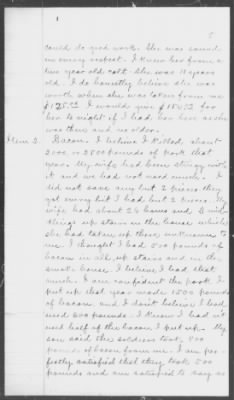 5
could do good work. She was sound
in every respect. I knew her from a
two year old colt. She was 11 years
old. I do honestly believe she was
worth when she was taken from me
$125.00 I would give $150.00 for
her to night if I had her here as she
was then and no older.
Item 2. Bacon. I believe I killed about
2000 or 2500 pounds of pork that
year. My wife had been
it and we had not used much. I
did not save any but 2 pieces they
got every bit I had but 2 pieces. My
wife had about 24 hams and
up stairs in the house which
she had taken up there unknown to
me. I thought I had 800 pounds of
bacon in all, up stairs and in the
smoke house. I believe I had that
much. I am confident the pork I
put up that year made 1500 pounds
of bacon, and I don't believe I had
used 600 pounds. I know I had n't
used half of the bacon I put up. My
son said the soldiers took, 800
pounds of bacon from me. I am per-
fectly satisfied that they took 500
pounds and am satisfied to say so